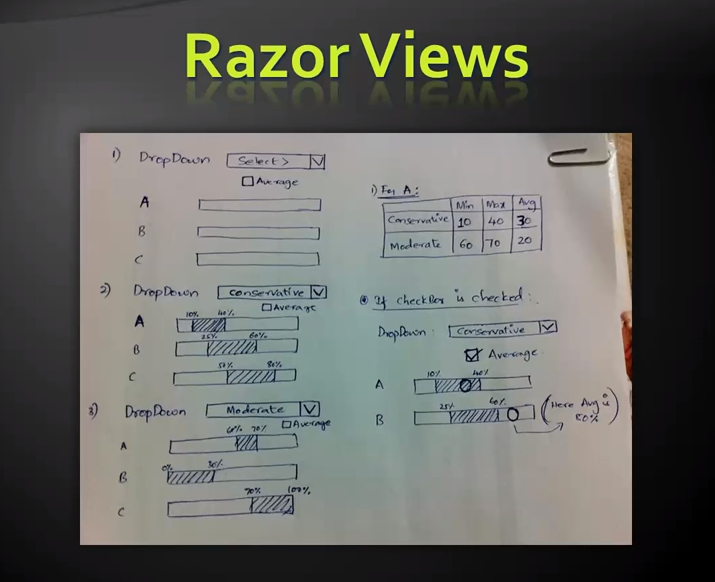 Razor Views
1) DropDown Select > V
Average
A
B
C
2) DropDown Conservative V
Average
A 10% 40%
B 25% 60%
C 50% 80%
3) DropDown Moderate V
Average
A 60% 70%
B 0% 30%
C 70% 100%
1) For A:
Min Max Avg
Conservative 10 40 30
Moderate 60 70 20
If CheckBox is checked:
DropDown: Conservative V
Average
A 10% 40%
B 25% 60%
(Here Avg is
80%)